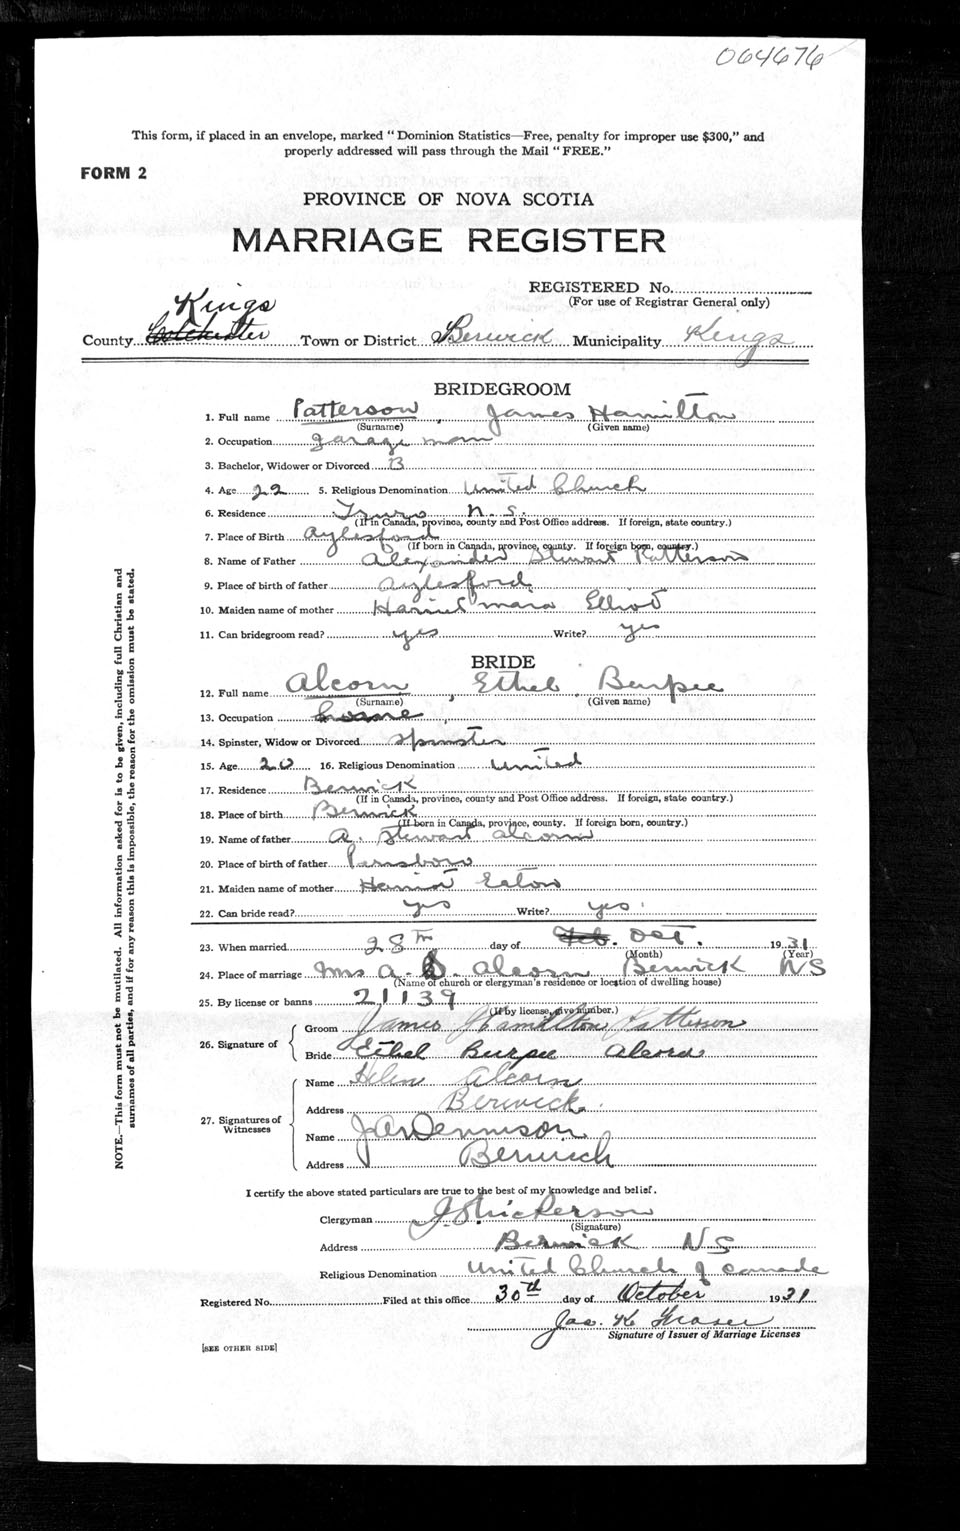 064676
This form, if placed in an envelope, marked "Dominion Statistics—Free, penalty for improper use $300," and
properly addressed will pass through the Mail "FREE."
FORM 2
PROVINCE OF NOVA SCOTIA
MARRIAGE REGISTER
REGISTERED No.
(For use of Registrar General only)
Kings
County Colchester Town or District Berwick Municipality Kings
BRIDEGROOM
1. Full name Patterson, James Hamilton
(Surname) (Given name)
2. Occupation garage man
3. Bachelor, Widower or Divorced B
4. Age 22 5. Religious Denomination United Church
6. Residence Truro N.S.
(If in Canada, province, county and Post Office address. If foreign, state country.)
7. Place of Birth Aylesford
(If born in Canada, province, county. If foreign born, country.)
8. Name of Father Alexander Stewart Patterson
9. Place of birth of father Aylesford
10. Maiden name of mother Elliot
11. Can bridegroom read? yes Write? yes
BRIDE
12. Full name Alcorn, Ethel Burpee
(Surname) (Given name)
13. Occupation
14. Spinster, Widow or Divorced spinster
15. Age 20 16. Religious Denomination United
17. Residence Berwick
(If in Canada, province, county and Post Office address. If foreign, state country.)
18. Place of birth Berwick
(If born in Canada, province, county. If foreign born, country.)
19. Name of father A. Stewart Alcorn
20. Place of birth of father Parrsboro
21. Maiden name of mother Eaton
22. Can bride read? yes Write? yes
23. When married 28th day of Feb. Oct. 1931
(Month) (Year)
24. Place of marriage Mrs A. S. Alcorn Berwick NS
(Name of church or clergyman's residence or location of dwelling house)
25. By license or banns 21139
(If by license, give number.)
26. Signature of Groom James Hamilton Patterson
Bride Ethel Burpee Alcorn
27. Signatures of Witnesses Name Helen Alcorn
Address Berwick
Name Dennison
Address Berwick
I certify the above stated particulars are true to the best of my knowledge and belief.
Clergyman Nickerson
(Signature)
Address Berwick NS
Religious Denomination United Church of Canada
Registered No. Filed at this office 30th day of October 1931
Jas. K Fraser
Signature of Issuer of Marriage Licenses
[SEE OTHER SIDE]
NOTE.—This form must not be mutilated. All information asked for is to be given, including full Christian and
surnames of all parties, and if for any reason this is impossible, the reason for the omission must be stated.